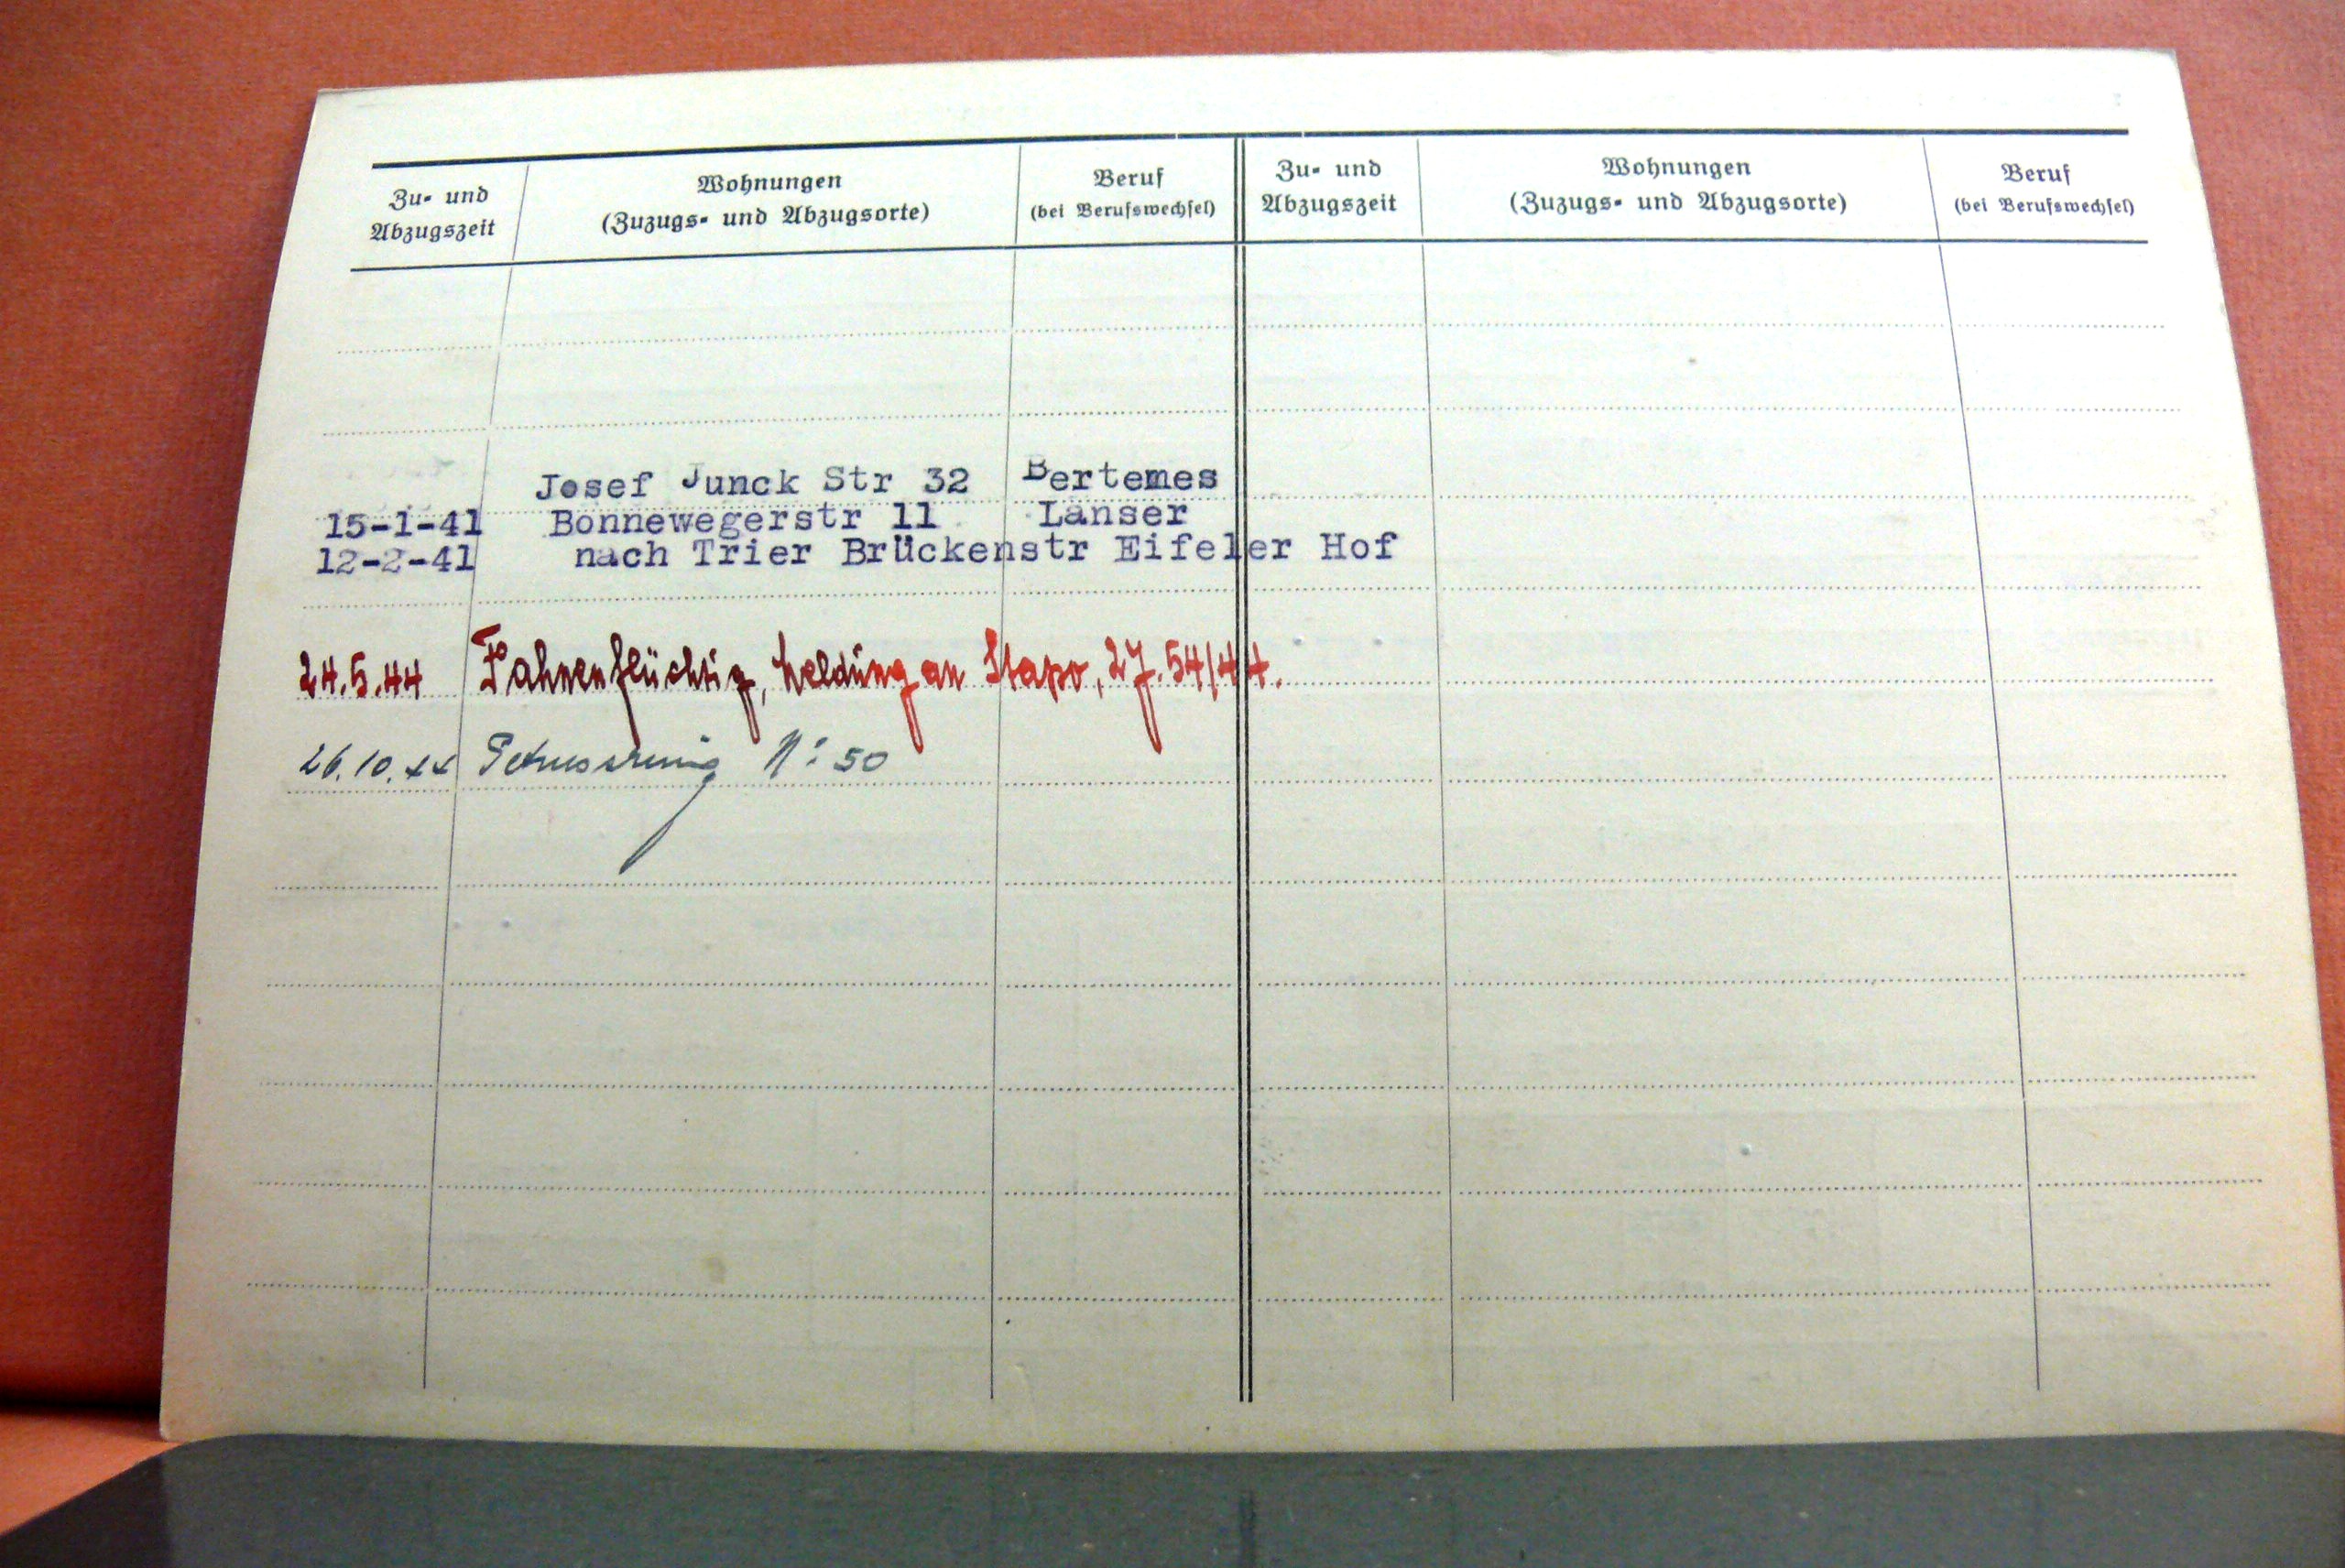 Zu- und Abzugszeit
Wohnungen
(Zuzugs- und Abzugsorte)
Beruf
(bei Berufswechsel)
Zu- und Abzugszeit
Wohnungen
(Zuzugs- und Abzugsorte)
Beruf
(bei Berufswechsel)
Josef Junck Str 32 Bertemes
15-1-41 Bonnewegerstr 11 Lanser
12-2-41 nach Trier Brückenstr Eifeler Hof
24.5.44 Fahnenflüchtig, Meldung an Stapo, 27.54/44.
26.10.44 Petrussring No 50